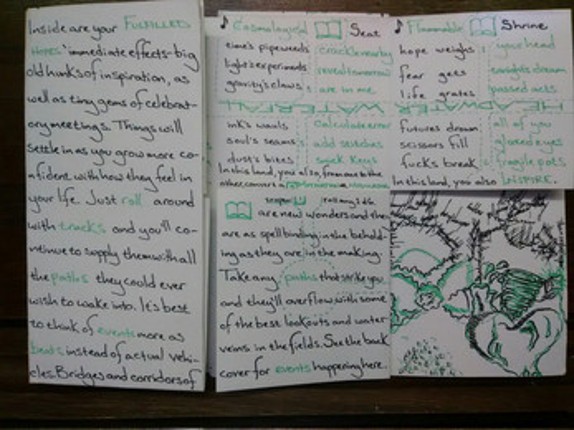 Inside are your FULFILLED
HOPES' immediate effects-big
old hunks of inspiration, as
well as tiny gems of celebrat-
ory meetings. Things will
settle in as you grow more co-
nfident with how they feel in
your life. Just roll around
with tracks and you'll co-
ntinue to supply them with all
the paths they could ever
wish to wake into. It's best
to think of events more as
beats instead of actual vehi-
cles. Bridges and corridors of
♪ Cosmological Seat
time's pipeweeds cracklenearby
light's experiments revealtomorrow
gravity's claws are in me.
ink's wauls calculate error
soul's seams add seizches
dust's bites
In this land, you also, from one to the
other, convert a
scopin' roll any 1d6.
are new wonders and the
are as spellbinding in the behold-
ing as they are in the making.
Take any paths that strike you
and they'll overflow with some
of the best lookouts and water
veins in the fields. See the back
cover for events happening here.
♪ Flammable Shrine
hope weighs your head
fear gets tonight's dream
life grates passed acts
HEADWATER
futures drown all of you
scissors fill glossed eyes
fucks break fragile pots
In this land, you also INSPIRE.